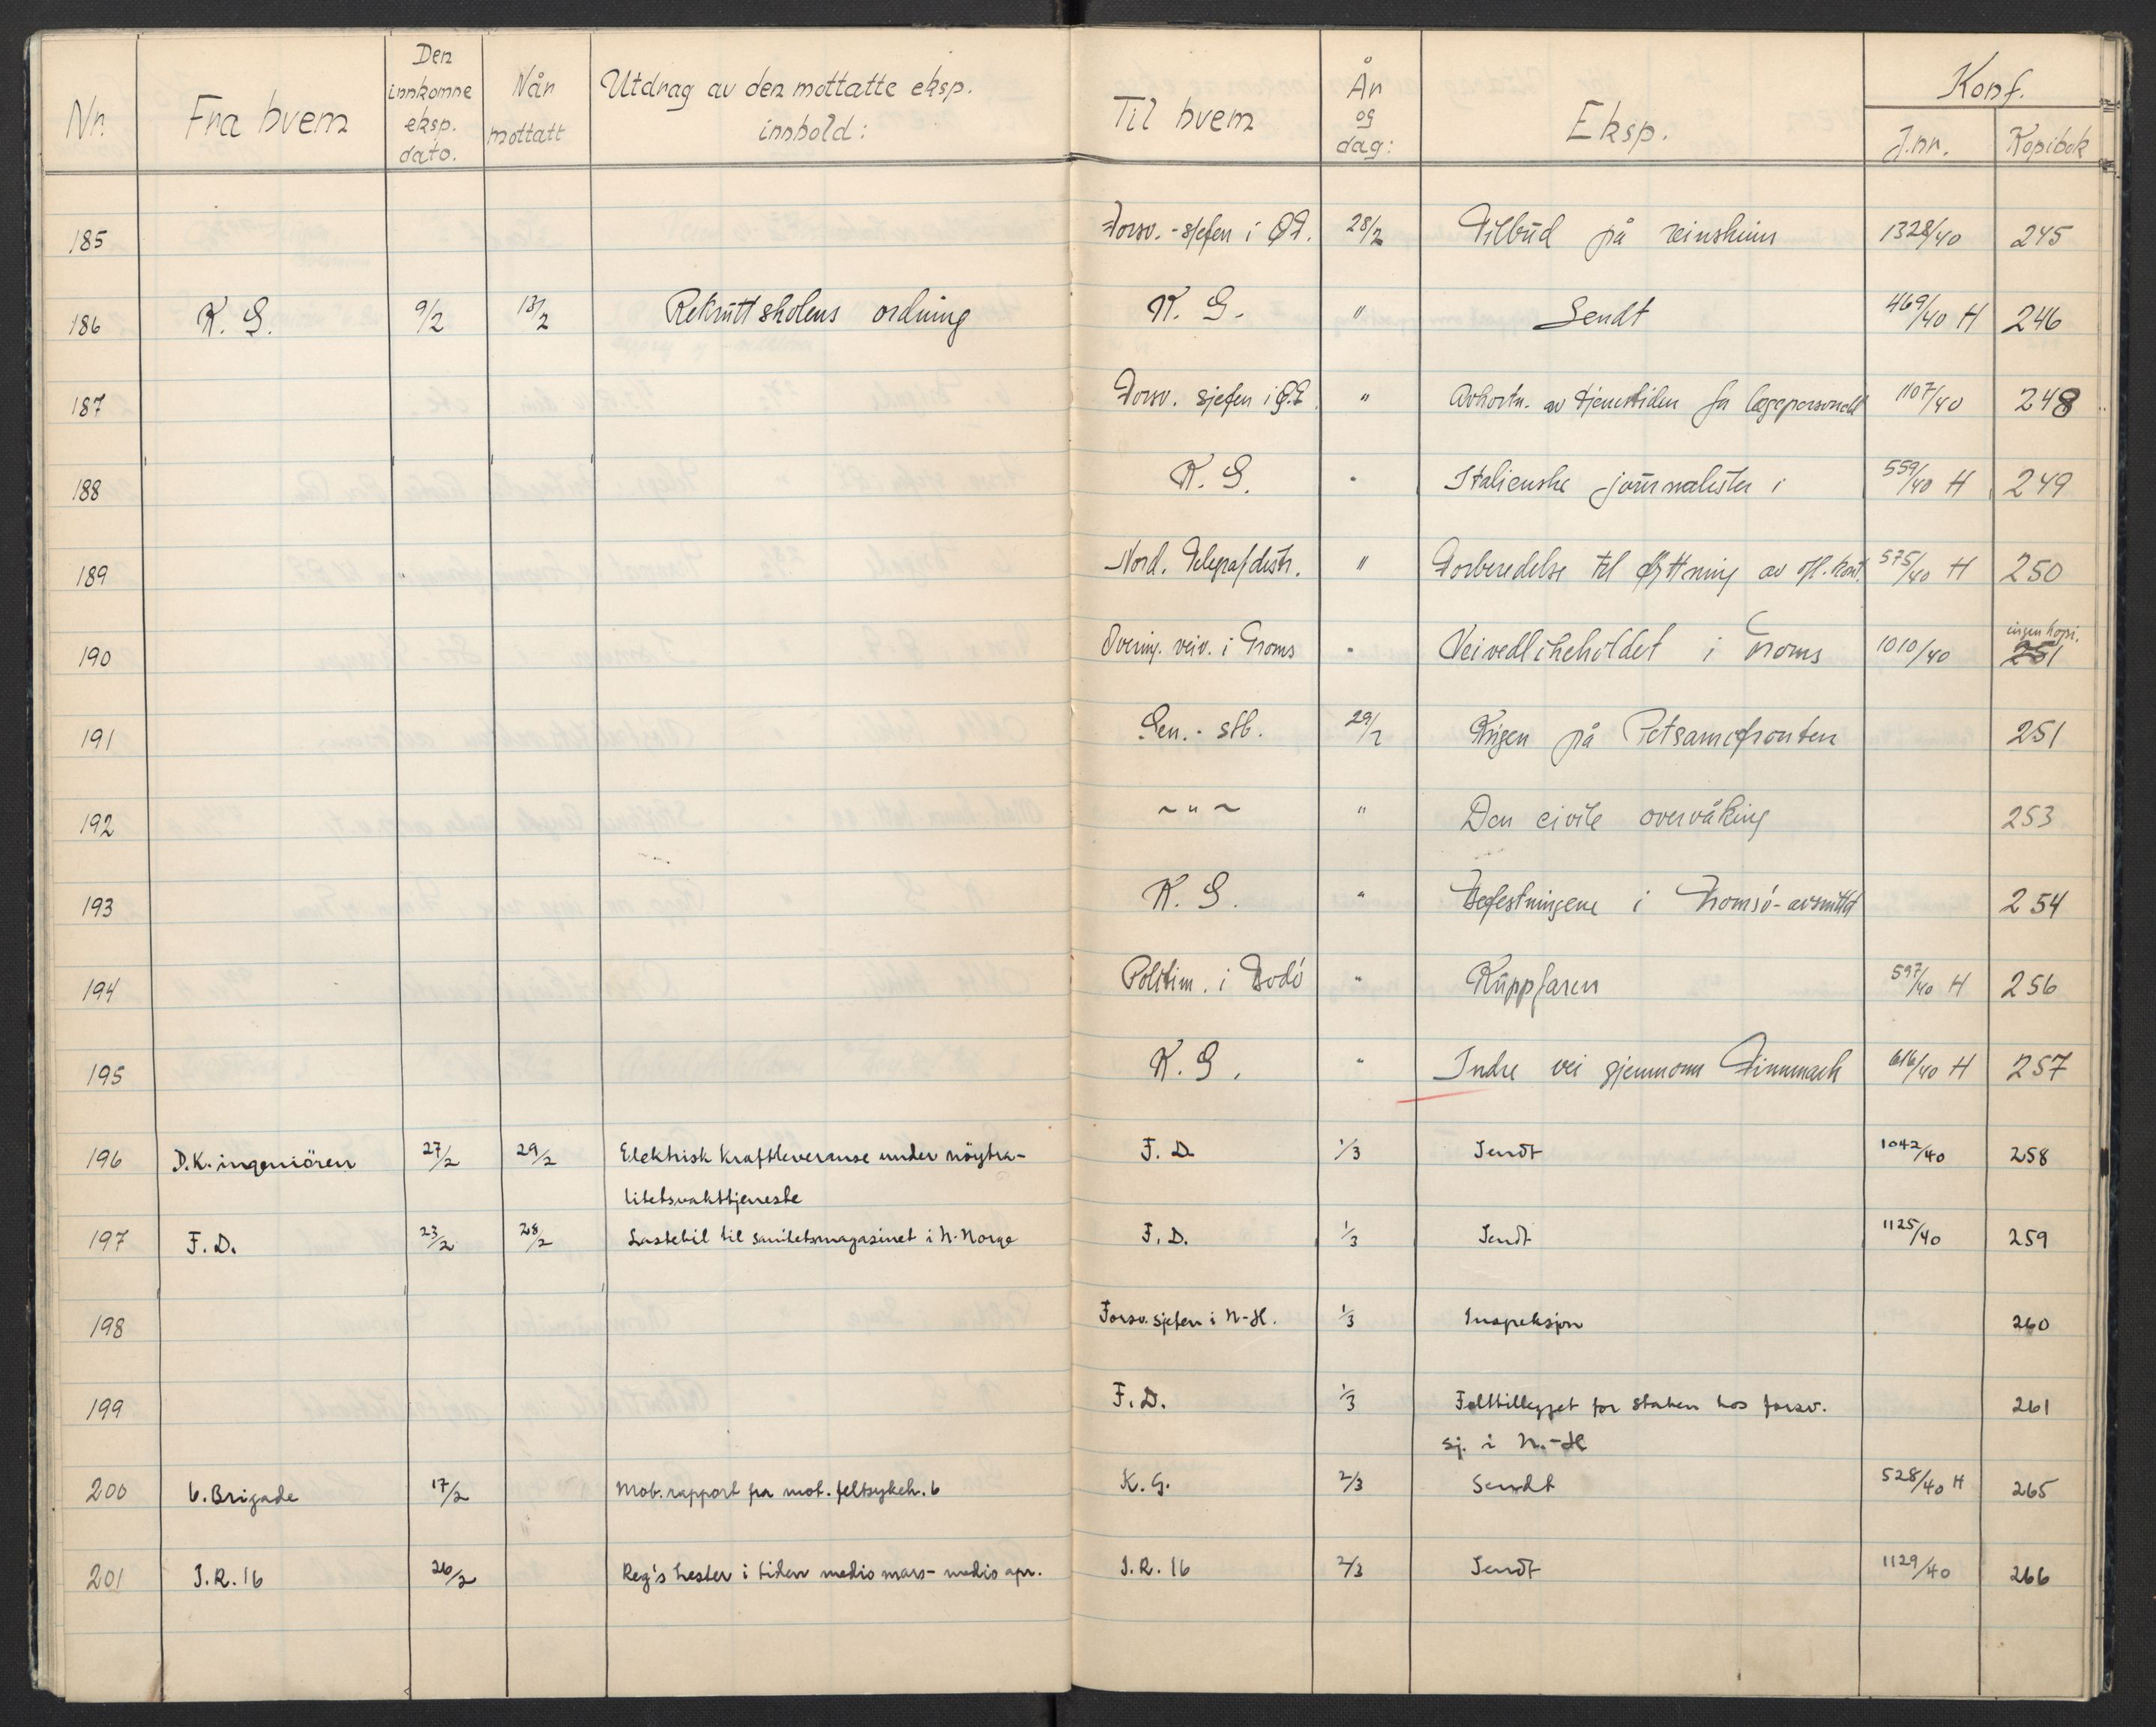 Nr. Fra hvem Den innkomne eksp. dato. Når mottatt Utdrag av den mottatte eksp. innhold: Til hvem År og dag: Eksp. Konf. J.nr. Kopibok
185 Forsv.-sjefen i Ø.F. 28/2 Tilbud på reinskinn 1328/40 245
186 K. G. 9/2 13/2 Rekruttskolens ordning K. G. " Sendt 469/40 H 246
187 Forsv. sjefen i Ø.F. " Avkortn. av tjenestiden for lægepersonell 1107/40 248
188 K. G. " Italienske journalister i 559/40 H 249
189 Nord. Telegrafdistr. " Forberedelse til flyttning av off. kont. 575/40 H 250
190 Overing. veiv. i Troms " Veivedlikeholdet i Troms 1010/40 ingen kopi. 251
191 Gen.-stb. 29/2 Krigen på Petsamofronten 251
192 ~ " ~ " Den civile overvåking 253
193 K. G. " Befestningene i Tromsö-avsnittet 254
194 Politim. i Bodö " 597/40 H 256
195 K. G. " Indre vei gjennom Finnmark 616/40 H 257
196 D.K. ingeniören 27/2 29/2 Elektrisk kraftleveranse under nöytra-
litetsvakttjeneste F. D. 1/3 Sendt 1042/40 258
197 F. D. 23/2 28/2 Lastebil til sanitetsmagasinet i N-Norge F. D. 1/3 Sendt 1125/40 259
198 Forsv. sjefen i N-H. 1/3 Inspeksjon 260
199 F. D. 1/3 Felttillegget for staben hos forsv.
sj. i N.-H 261
200 6. Brigade 17/2 Mob. rapport fra mot. feltsykeh. 6 K. G. 2/3 Sendt 528/40 H 265
201 I.R. 16 26/2 Reg's hester i tiden medio mars - medio apr. I.R. 16 2/3 Sendt 1129/40 266